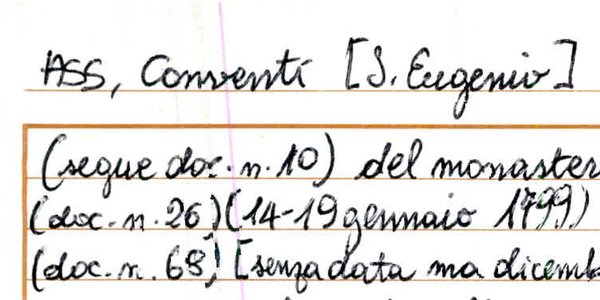 ASS, Conventi [S. Eugenio]
(segue doc. n. 10) del monaster
(doc. n. 26) (14-19 gennaio 1799)
(doc. n. 68) [senza data ma dicemb